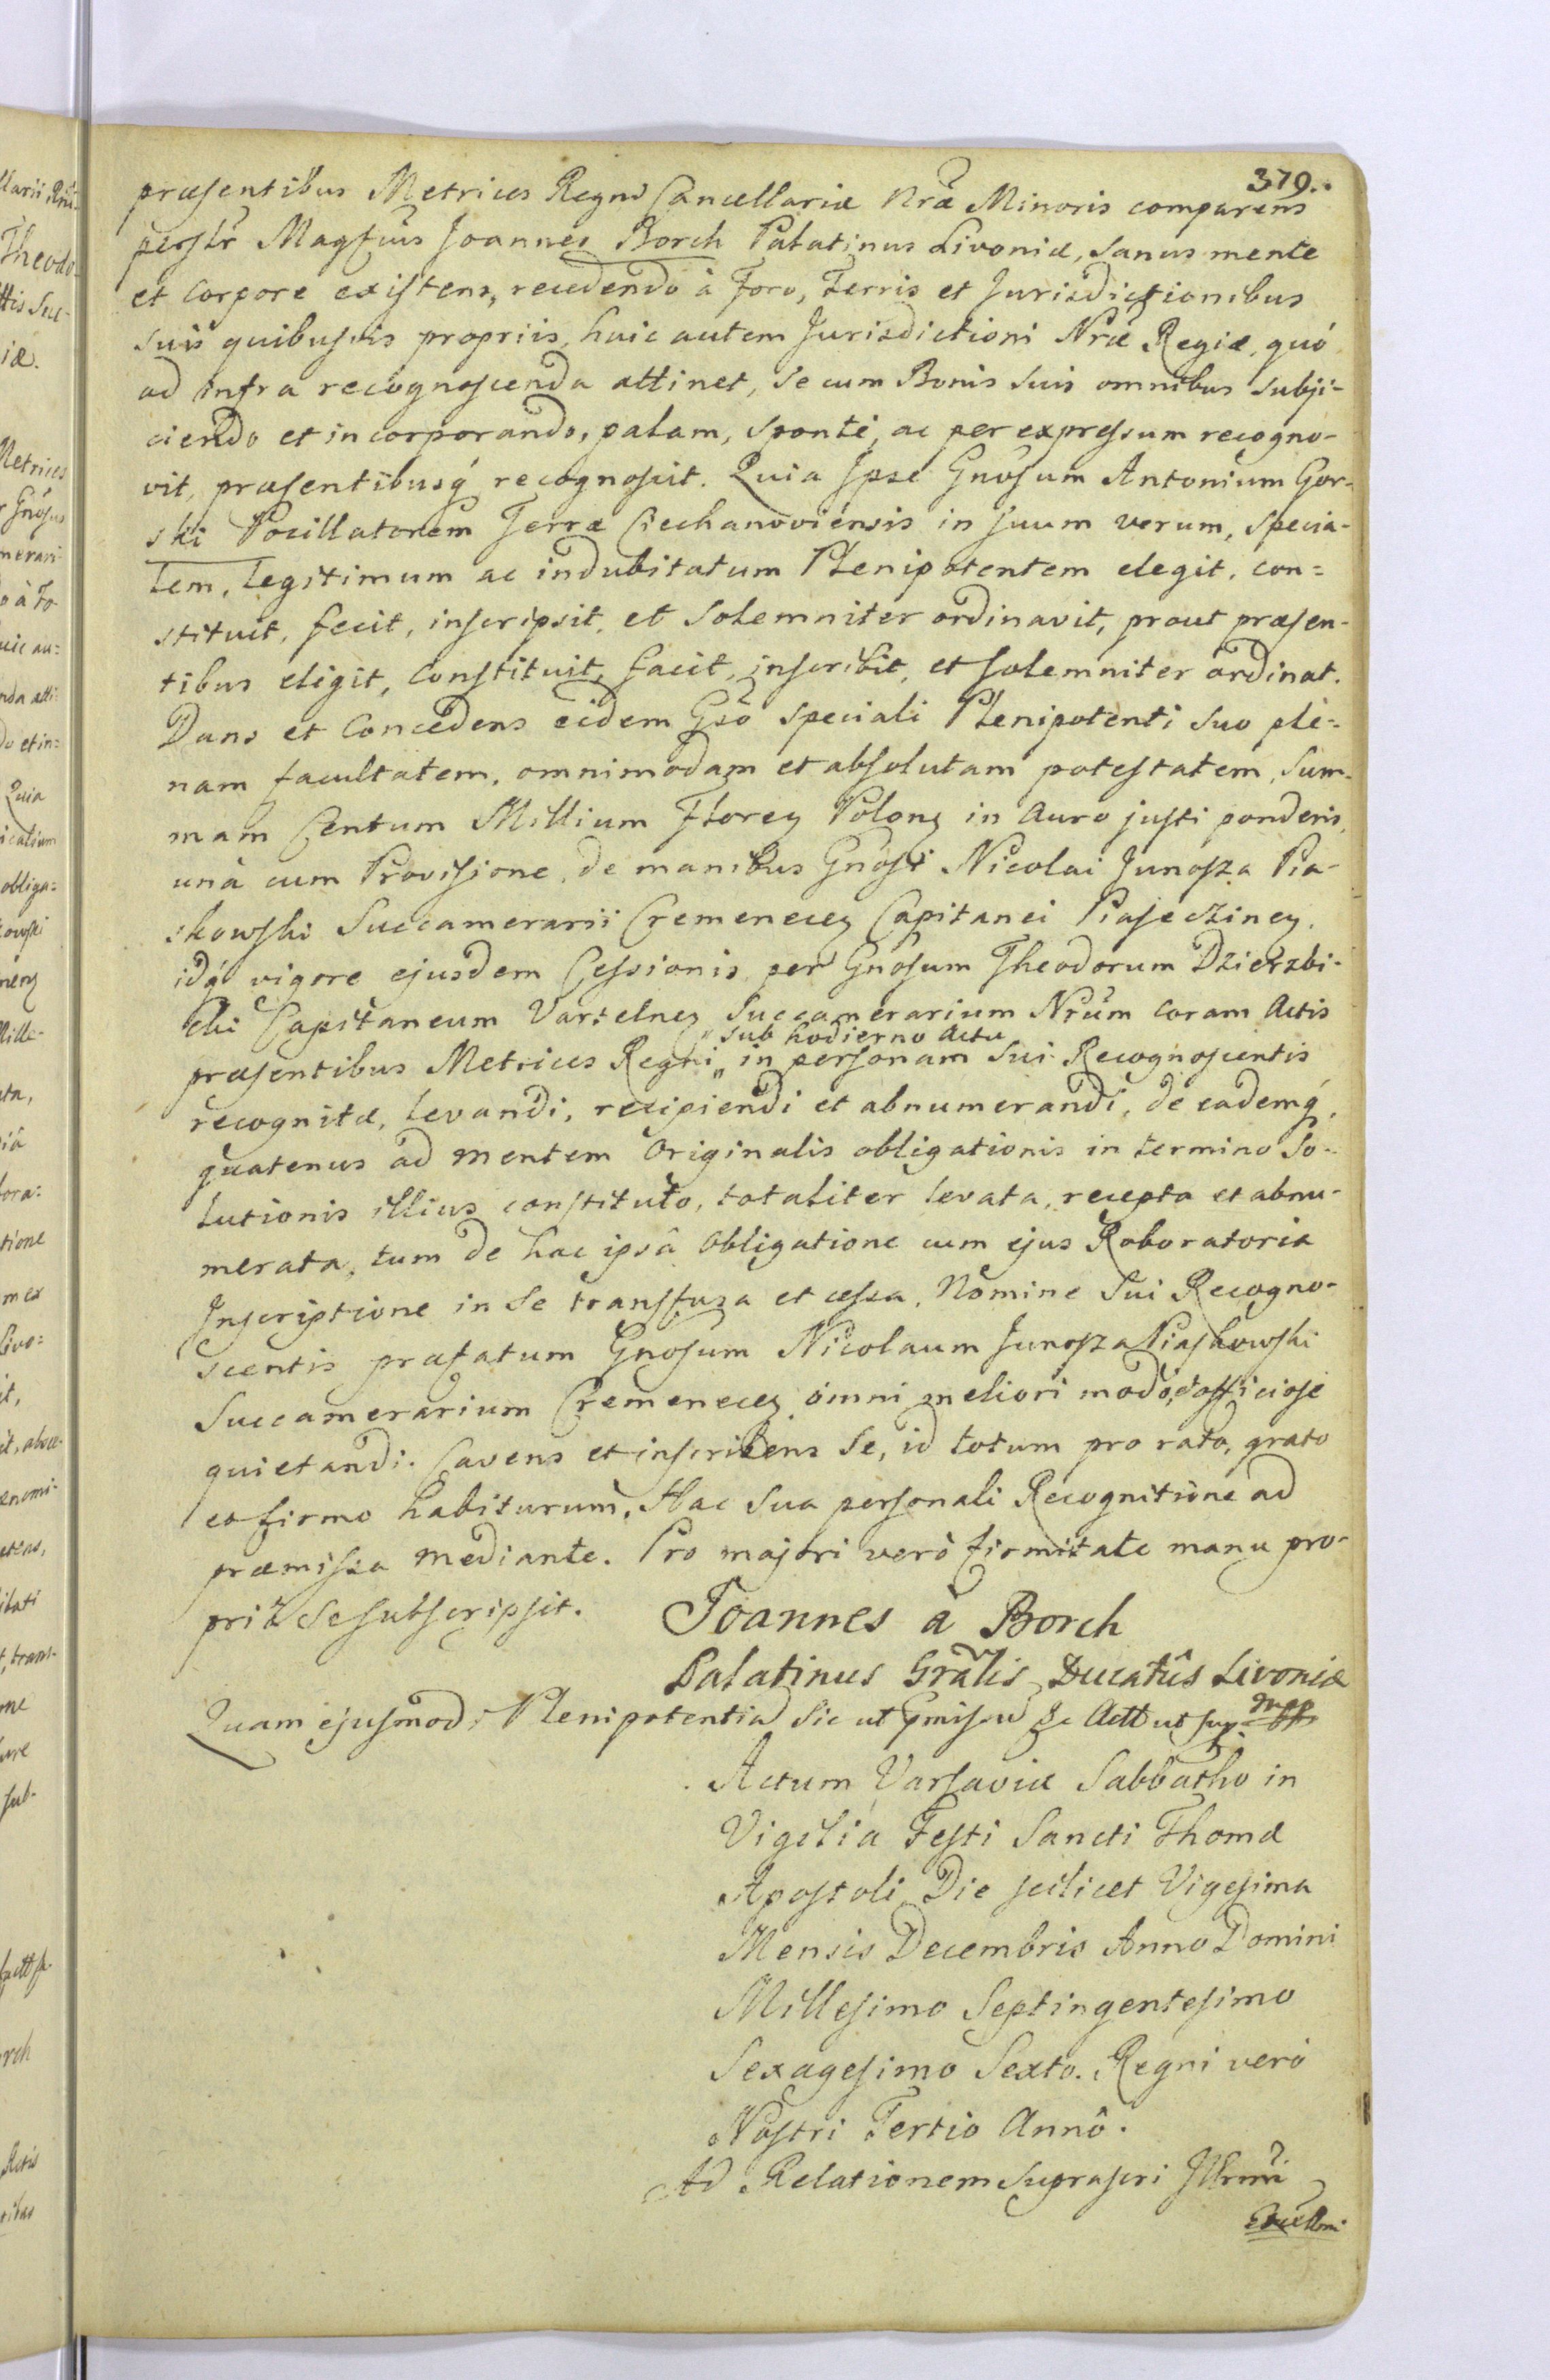 379.
præsentibus Metrices Regni Cancellariæ Nræ Minoris comparens
persltr Magfcus Joannes Borch Palatinus Livoniæ, sanus mente
et corpore existens, recedendo à Foro, Terris et Jurisdictionibus
suis quibusvis propriis, huic autem Jurisdictioni Nræ Regiæ, quó
ad infra recognoscenda attinet, se cum Bonis suis omnibus subji-
ciendo et incorporando, palam, sponte, ac per expressum recogno-
vit, præsentibusq́ recognoscit. Quia Ipse Gnosum Antonium Gor-
ski Pocillatorem Terræ Ciechanoviensis in suum verum, specia-
lem, legitimum ac indubitatum Plenipotentem elegit, con=
stituit, fecit, inscripsit, et solemniter ordinavit, prout præsen-
tibus eligit, constituit, facit, inscribit, et solemniter ordinat.
Dans et Concedens eidem Gso speciali Plenipotenti suo ple=
nam facultatem, omnimodam et absolutam potestatem, Sum-
mam Centum Millium Floreņ Poloņ in Auro justi ponderis,
unà cum Provisione, de manibus Gnosi Nicolai Junosza Pia-
skowski Succamerarii Cremeneceņ Capitanei Piaseczineņ.
idq́ vigore ejusdem Cessionis per Gnosum Theodorum Dzierzbi-
cki Capitaneum Vartelneņ Succamerarium Nrum coram Actis
„ sub hodierno Actu
præsentibus Metrices Regni „ in personam Sui Recognoscentis
recognitæ, levandi, recipiendi et abnumerandi, de eademq́,
quatenus ad mentem Originalis obligationis in termino So-
lutionis illius constituto, totaliter levata, recepta et abnu-
merata, tum de hac ipsâ Obligatione cum ejus Roboratoria
Inscriptione in se transfusa et cessa, Nomine Sui Recogno-
scentis præfatum Gnosum Nicolaum Junosza Piaskowski
Succamerarium Cremeneceņ omni meliori modo, et officiose
quietandi. Cavens et inscribens Se, id totum pro rato, grato
et firmo habiturum, Hac Sua personali Recognitione ad
præmissa mediante. Pro majori verò firmitate manu pro-
pria Se subscripsit. Joannes à Borch
Palatinus Gralis Ducatûs Livoniæ
mpp
Quam ejusmodi Plenipotentia sic ut pmissu &c Actt ut sup.
Actum Varsaviæ Sabbatho in
Vigilia Festi Sancti Thomæ
Apostoli Die scilicet Vigesima
Mensis Decembris Anno Domini
Millesimo Septingentesimo
Sexagesimo Sexto. Regni verò
Nostri Tertio Annô.
Ad Relationem suprascri Illrmi